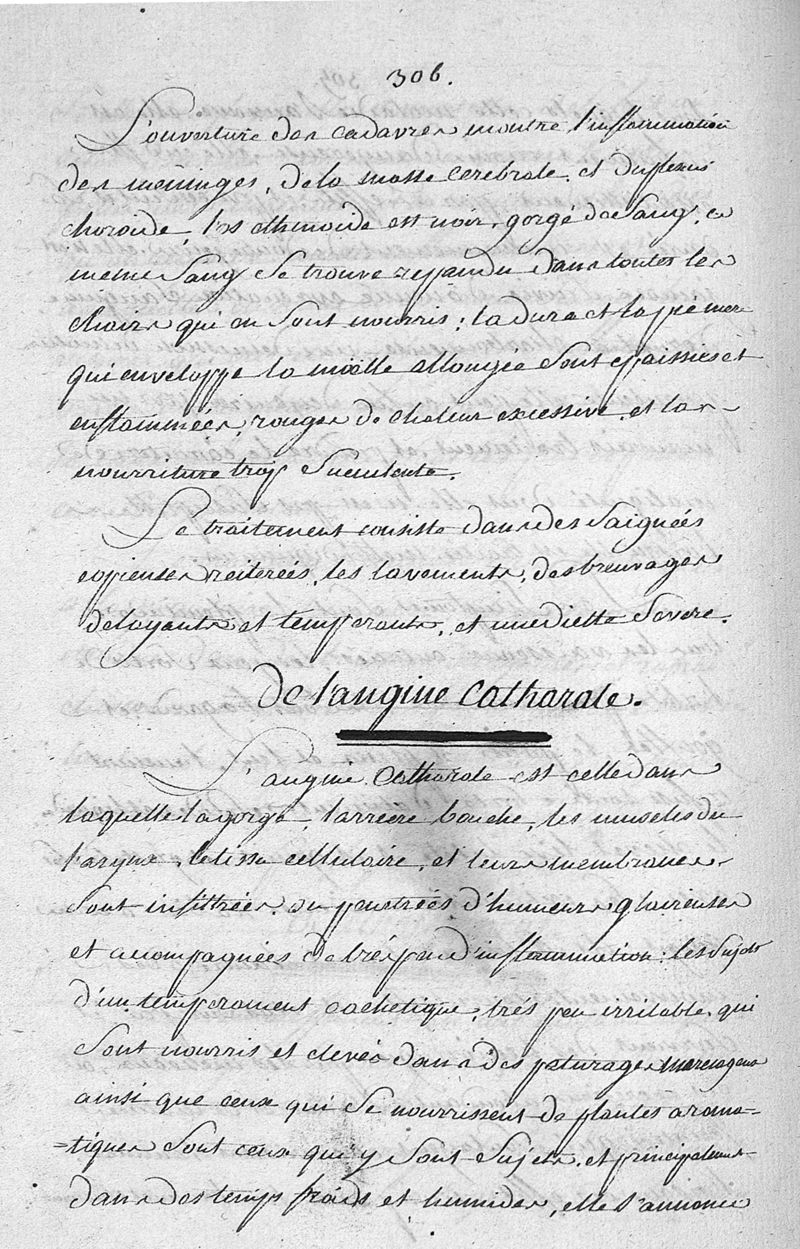 306.
L'ouverture des cadavres montre l'inflammation
des meninges, de la masse cerebrale, et du plexus
choroïde, l'os ethmoïde est noir, gorgé de sang, ce
meme sang se trouve repandu dans toutes les
chairs qui en sont nourris; la dure et la pie mere
qui enveloppe la moëlle allongée sont epaisses et
enflammées, rouges de chaleur excessive, et la
nourriture trop succulente.
Le traitement consiste dans des saignées
copieuses reiterées, les lavements, des breuvages
delayants et temperants, et une diette severe.
De l'angine Catharale.
L'angine Catharale est celle dans
laquelle la gorge, l'arriere bouche, les muscles du
larynx, le tissu cellulaire, et leurs membranes
sont infiltrées ou penetrées d'humeurs glaireuses
et accompagnées de trés peu d'inflammation: les sujets
d'un temperament cachetique, trés peu irritable, qui
sont nourris et elevés dans des paturages marecageux
ainsi que ceux qui se nourrissent de plantes aroma-
=tiques sont ceux qui y sont sujets, et principalement
dans des temps froids et humides, elle s'annonce